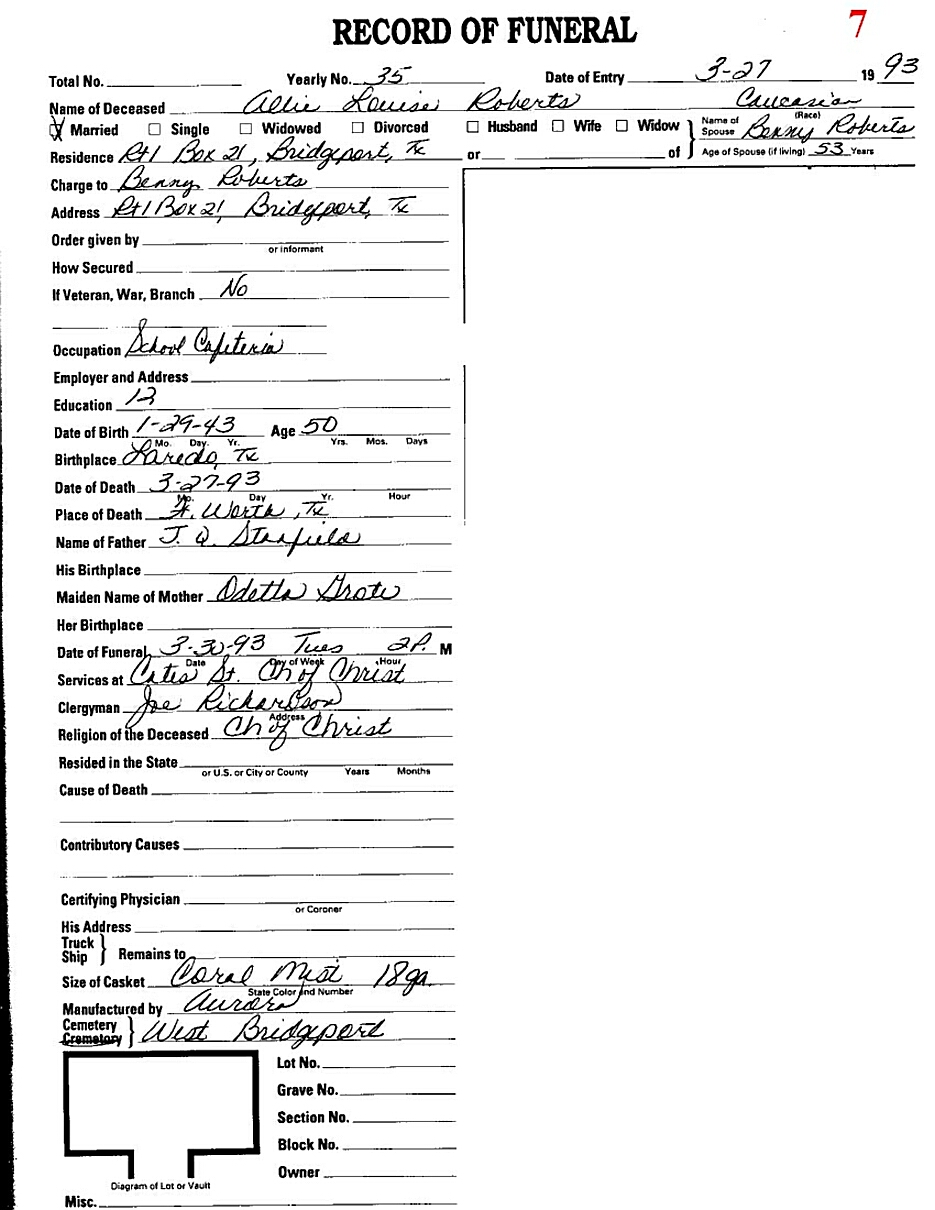 RECORD OF FUNERAL 7
Total No. Yearly No. 35 Date of Entry 3-27 19 93
Name of Deceased Allie Louise Roberts Caucasian
(Race)
Married Single Widowed Divorced Husband Wife Widow Name of Spouse Benny Roberts
Residence Rt 1 Box 21, Bridgeport, Tx or of Age of Spouse (if living) 53 Years
Charge to Benny Roberts
Address Rt 1 Box 21, Bridgeport, Tx
Order given by
or Informant
How Secured
If Veteran, War, Branch No
Occupation School Cafeteria
Employer and Address
Education 12
Date of Birth 1-29-43 Age 50
Mo. Day. Yr. Yrs. Mos. Days
Birthplace Laredo, Tx
Date of Death 3-27-93
Mo. Day Yr. Hour
Place of Death Ft. Worth, Tx
Name of Father J. D. Stanfield
His Birthplace
Maiden Name of Mother Odetta Grote
Her Birthplace
Date of Funeral 3-30-93 Tues 2 P. M
Date Day of Week Hour
Services at Cates St. Ch of Christ
Clergyman Joe Richardson
Address
Religion of the Deceased Ch of Christ
Resided in the State
or U.S. or City or County Years Months
Cause of Death
Contributory Causes
Certifying Physician
or Coroner
His Address
Truck
Ship Remains to
Size of Casket Coral Mist 18ga.
State Color and Number
Manufactured by Aurora
Cemetery
Crematory West Bridgeport
Lot No.
Grave No.
Section No.
Block No.
Owner
Diagram of Lot or Vault
Misc.